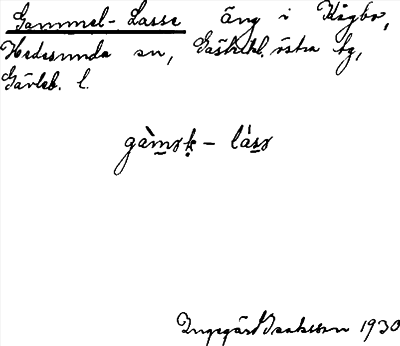 Gammel-Lasse äng i Vågbo,
Hedesunda sn, Gästrikl. östra tg,
Gävleb. l.
gàmək - låsə
Ingegärd Isaksson 1930